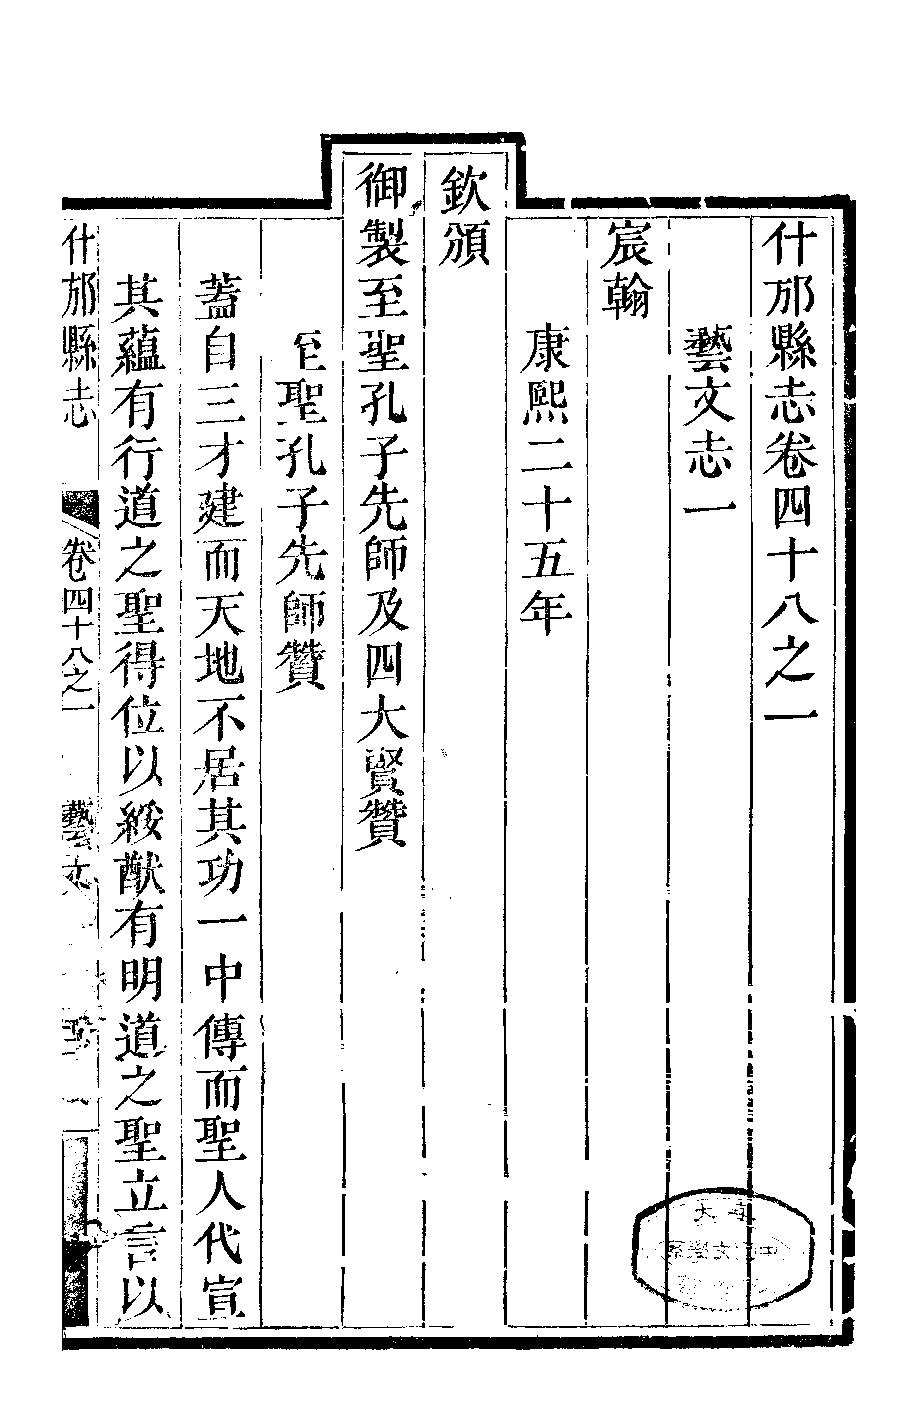 什邡縣志卷四十八之一
藝文志一
宸翰
康熙二十五年
欽頒
御製至聖孔子先師及四大賢贊
至聖孔子先師贊
蓋自三才建而天地不居其功一中傳而聖人代宣
其蘊有行道之聖得位以綏猷有明道之聖立言以
什邡縣志
卷四十八之一
藝文